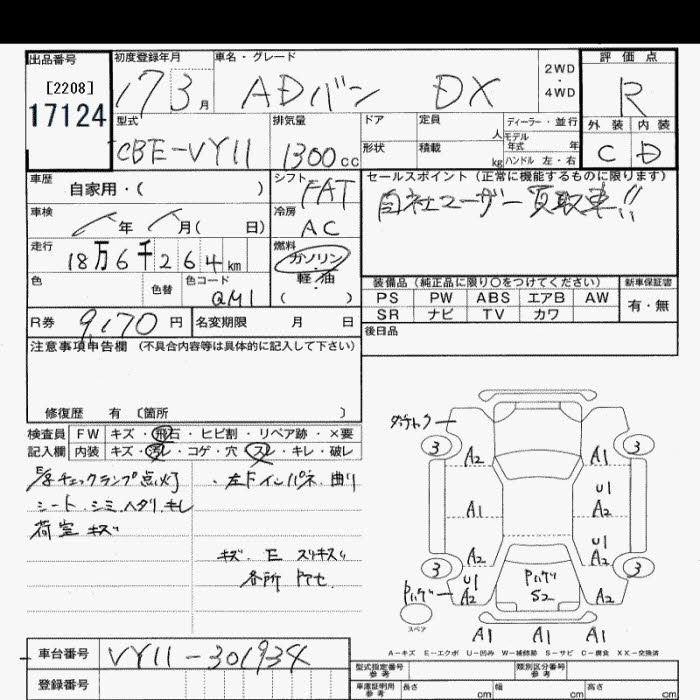 出品番号 初度登録年月 車名・グレード 2WD・4WD 評価点
[2208]
17124
17 3月 ADバン DX R
型式 排気量 ドア 定員 人 ディーラー・並行 外装 内装
CBE-VY11 1300cc 形状 積載 kg モデル年式 年 ハンドル 左・右 C D
車歴 自家用・( ) シフト FAT セールスポイント (正常に機能するものに限ります)
自社ユーザー買取車!!
車検 年 月( 日) 冷房 AC
走行 18万6千264km 燃料 ガソリン・軽油 ( )
色 色替 色コード QM1
装備品 (純正品に限り○をつけてください) 新車保証書
PS PW ABS エアB AW 有・無
SR ナビ TV カワ
R券 9,170円 名変期限 月 日 後日品
注意事項申告欄 (不具合内容等は具体的に記入して下さい)
修復歴 有 〔箇所 〕
検査員 FW キズ・飛石・ヒビ割・リペア跡・×要
記入欄 内装 キズ・汚レ・コゲ・穴・スレ・キレ・破レ
チェックランプ点灯 ・左Fインパネ 曲り
シート シミ ヘタリ キレ
荷室 キズ
キズ E スリキズ
各所
3 A2 A1 3
A1 U1 A2
A2 U1 A2
3 U1 A2 S2 A2 3
スペア A1 A1 A1
A-キズ E-エクボ U-凹み W-補修跡 S-サビ C-腐食 XX-交換済
車台番号 VY11-301934
登録番号
型式指定番号 参考 類別区分番号 参考
車庫証明用 参考 長さ cm 幅 cm 高さ cm